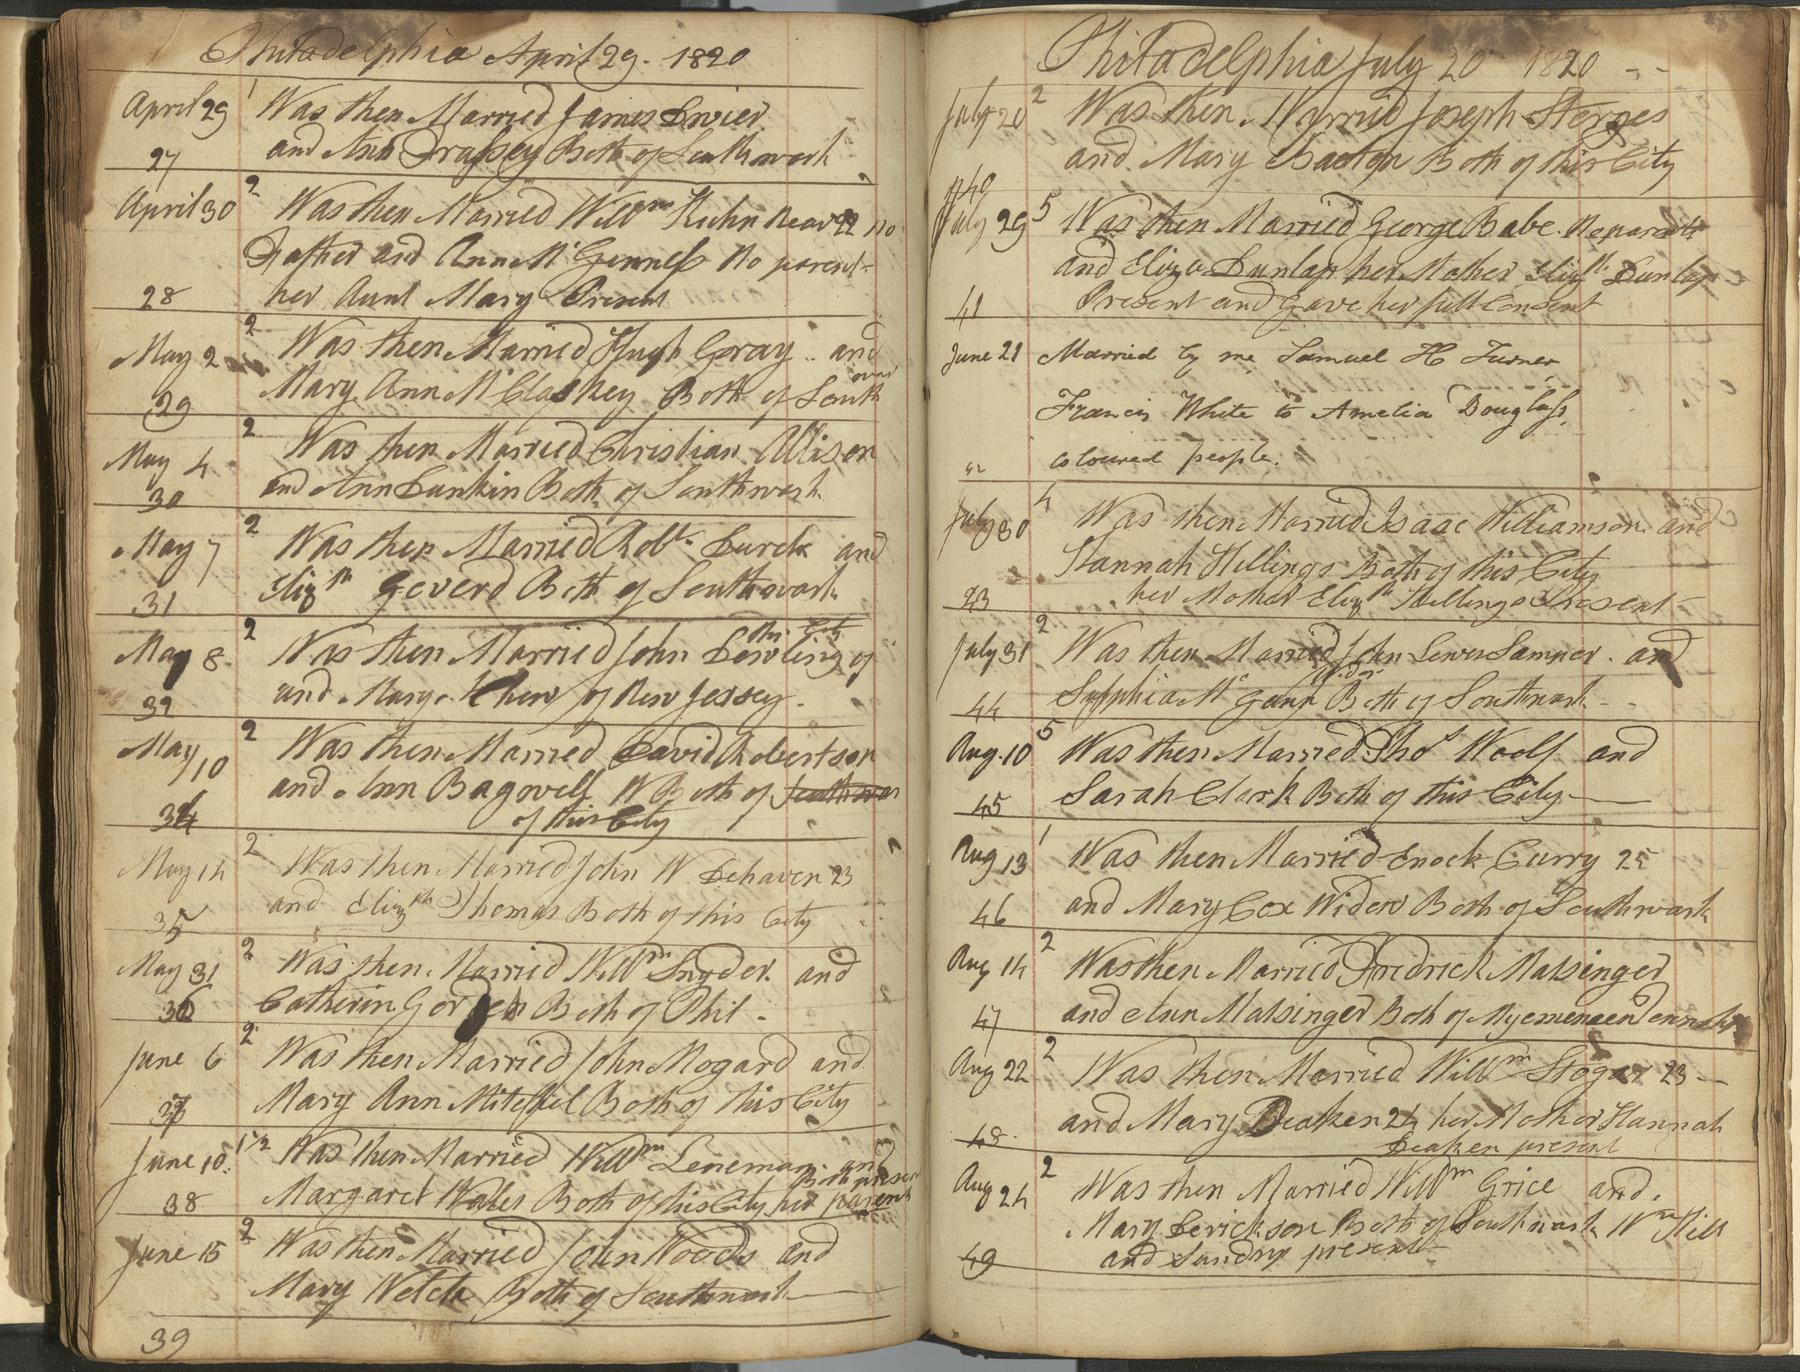 Philadelphia April 29. 1820
April 29 1 Was then Married James
27 and Ann Both of Southwark
April 30 2 Was then Married Willm Kuhn near 22 no
Father and Ann McGenness No parent
28 her Aunt Mary Present
May 2 2 Was then Married Hugh Gray .. and
wark
29 Mary Ann McClaskey Both of South
May 4 2 Was then Married Christian Allison
30 and Ann Dunkin Both of Southwark
May 7 2 Was then Married Robt. and
31 Elizth Geverd Both of Southwark
this City
May 8 2 Was then Married John Dowling of
32 and Mary of New Jersey.
May 10 2 Was then Married David Robertson
34 and Ann Bagwell W Both of Southwar
of this City
May 14 2 Was then Married John W. Dehaven 23
35 and Elizth Thomas Both of this City
May 31 2 Was then Married Willm Snyder and
36 Catherin Both of Phil -
June 6 2 Was then Married John Mogard and
37 Mary Ann Both of this City
June 10. 1/2 Was then Married Willm Leneman and
Both presen
38 Margaret Wales Both of this City her parent
June 15 2 Was then Married John Woods and
Mary Welch Both of Southwark
39
Philadelphia July 20 1820 - -
July 20 2 Was then Married Joseph Sterges
and Mary Both of this City
40
July 29 5 Was then Married George Babe. No parents
and Eliza Dunlap her Mother Elizth Dunlap
41 Present and gave her full Consent
June 21 Married by me Samuel H Turner
Francis White to Amelia Douglass,
42 coloured people.
July 30 4 Was then Married Isaac Williamson and
Hannah Hillings Both of this City
43 her Mother Elizth Hillings Present
July 31 2 Was then Married John Lewis Samner. and
44 Sulphia Mc Both of Southwark - -
Aug. 10 5 Was then Married Thos Woolf and
45 Sarah Clark Both of this City
Aug 13 1 Was then Married Enock Curry 25
46 and Mary Cox Widow Both of Southwark
Aug 14 2 Was then Married Fredrick Matsinger
47 and Ann Matsinger Both of
Aug 22 2 Was then Married Willm 23 -
48 and Mary Deaken 21 her Mother Hannah
Deaken present
Aug 24 2 Was then Married Willm Grice and.
Mary Derickson Both of Southwark Wm Hill
49 and Sundry present